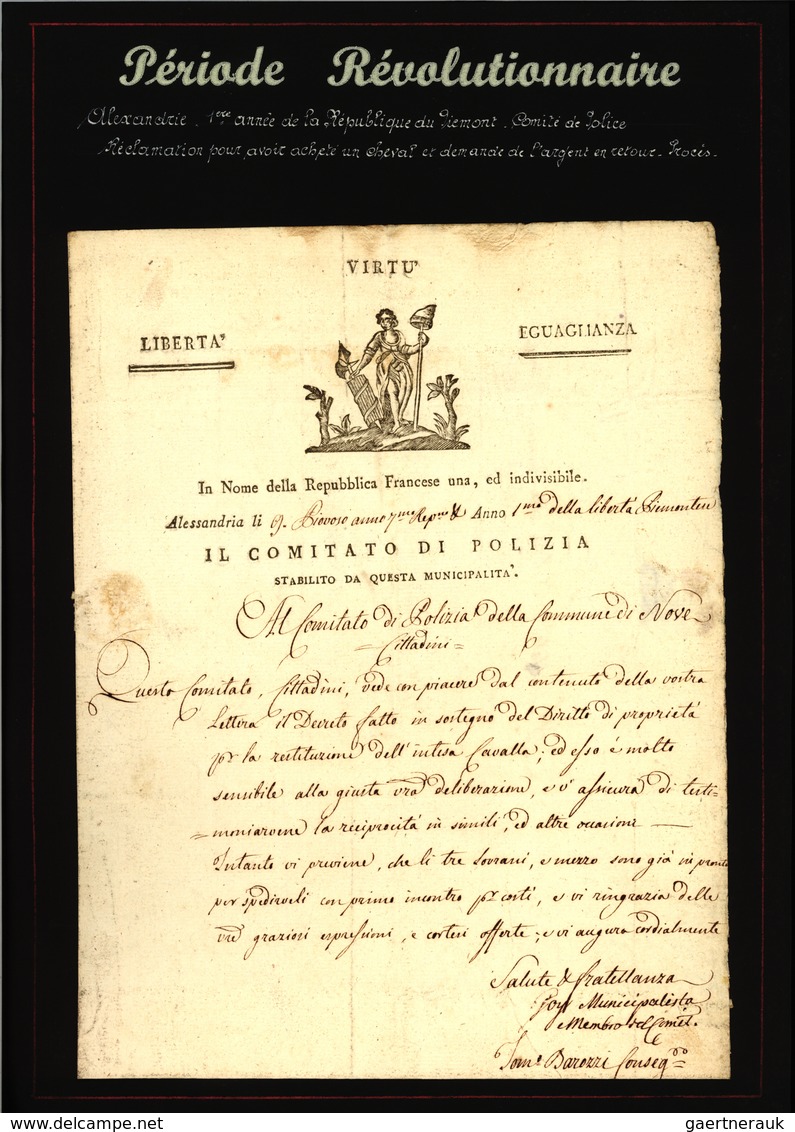 Période Révolutionnaire
Alexandrie. 1ère année de la République du Piemont. Comité de Police
Réclamation pour avoir acheté un cheval et demande de l'argent en retour. Procès.
VIRTU'
LIBERTA'
EGUAGLIANZA
In Nome della Repubblica Francese una, ed indivisibile.
Alessandria li 9. Piovoso anno 7.mo Rep.no & Anno 1.mo della libertà Piemontese
IL COMITATO DI POLIZIA
STABILITO DA QUESTA MUNICIPALITA'.
Al Comitato di Polizia della Commune di Nove
= Cittadini =
Questo Comitato, Cittadini, vede con piacere dal contenuto della vostra
Lettera il Decreto fatto in sostegno del Diritto di proprietà
pr la restituzione dell'intesa Cavalla; ed esso é molto
sensibile alla giusta vra deliberazione, e v'assicura di testi=
=moniarvene la reciprocità in simili, ed altre occasioni
Intanto vi previene, che li tre sovrani, e mezzo sono già in pronto
per spedirveli con primo incontro pr costì, e vi ringrazia delle
vre graziosi espressioni, e cortesi offerte; e vi augura cordialmente
Salute & fratellanza
Municipalista
Membro del Comit.
Barozzi Conseg.
gaertnerauk